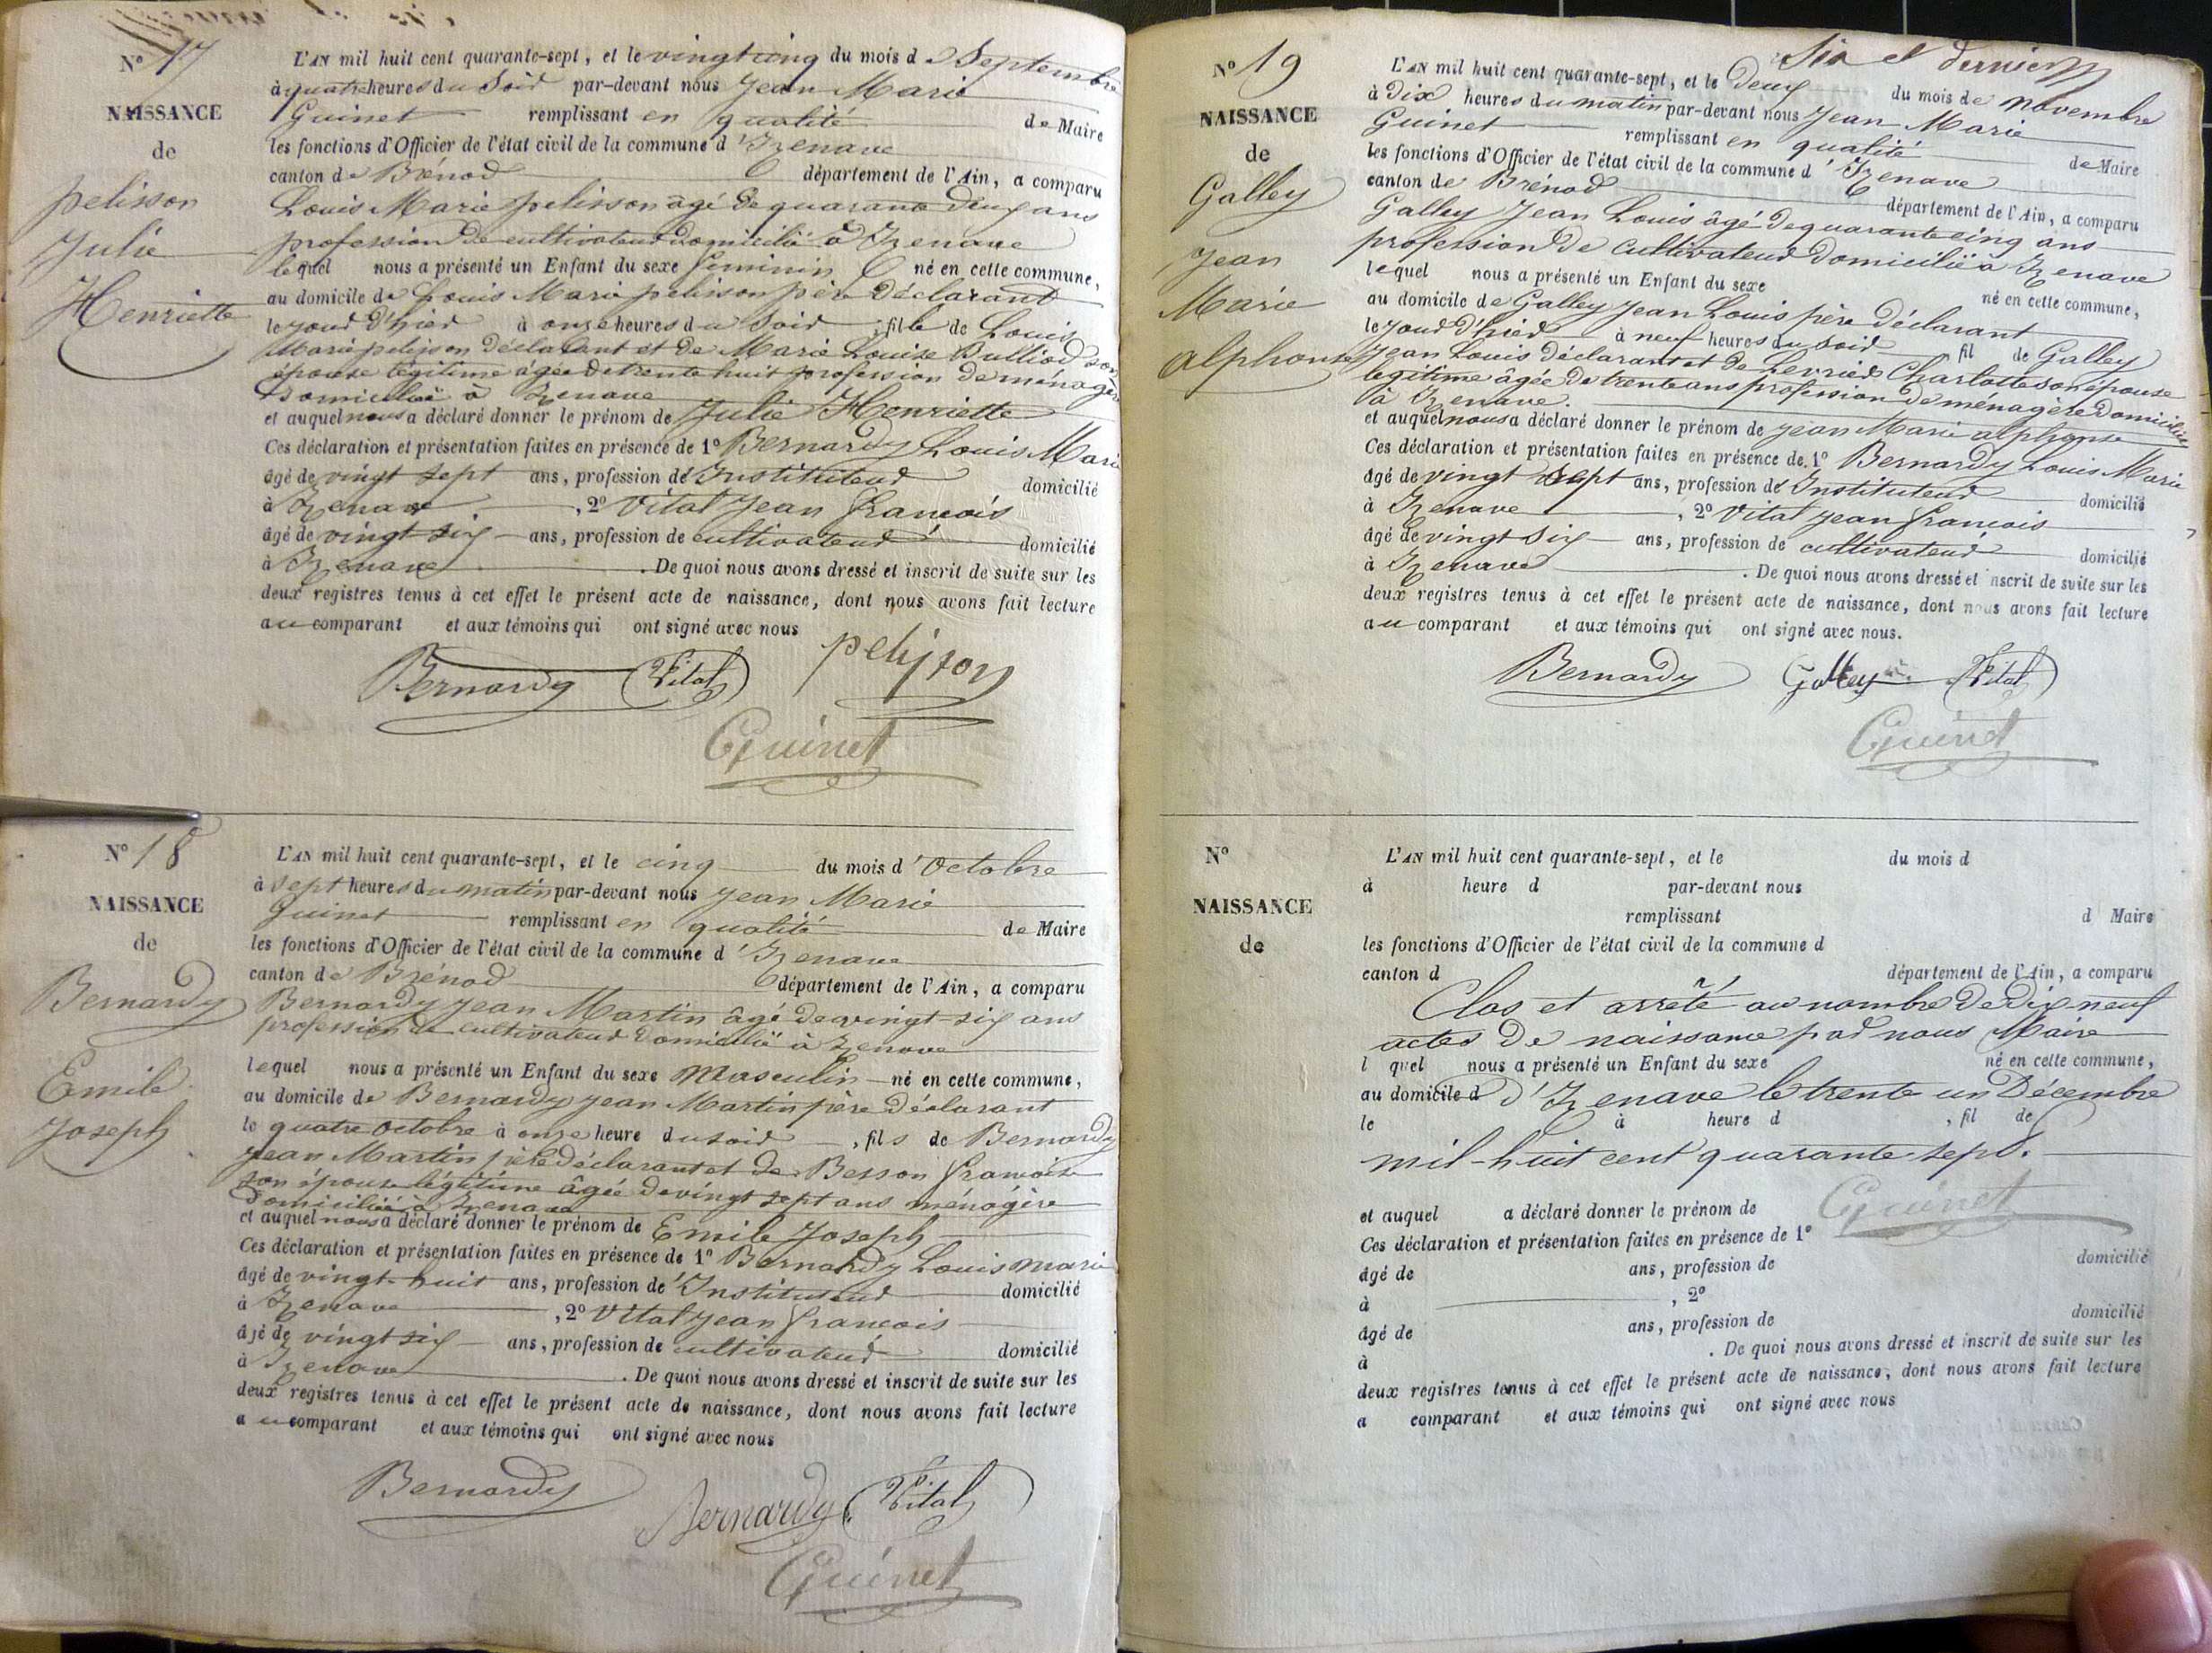 N° 17
NAISSANCE
de
pelisson
Julie
Henriette
L'AN mil huit cent quarante-sept, et le vingt cinq du mois d e Septembre
à quatre heures du Soir par-devant nous Jean Marie
Guinet remplissant en qualité de Maire
les fonctions d'Officier de l'état civil de la commune d'Izenave
canton de Brénod département de l'Ain, a comparu
Louis Marie pelisson âgé de quarante deux ans
profession de cultivateur domicilié à Izenave
lequel nous a présenté un Enfant du sexe feminin né en cette commune,
au domicile de Louis Marie pelisson père déclarant
le jour d'hier à onze heures du soir fille de Louis
Marie pelisson déclarant et de Marie Louise son
épouse légitime agée de trente huit profession de ménagère
domiciliée à Izenave
et auquel nous a déclaré donner le prénom de Julie Henriette
Ces déclaration et présentation faites en présence de 1° Bernardy Louis Marie
âgé de vingt sept ans, profession d'Instituteur domicilié
à Izenave, 2° Vital Jean francois
âgé de vingt six ans, profession de cultivateur domicilié
à Izenave. De quoi nous avons dressé et inscrit de suite sur les
deux registres tenus à cet effet le présent acte de naissance, dont nous avons fait lecture
au comparant et aux témoins qui ont signé avec nous
Bernardy Vital pelisson
Guinet
N° 18
NAISSANCE
de
Bernardy
Emile
Joseph
L'AN mil huit cent quarante-sept, et le cinq du mois d'Octobre
à sept heures du matin par-devant nous Jean Marie
Guinet remplissant en qualité de Maire
les fonctions d'Officier de l'état civil de la commune d'Izenave
canton de Brénod département de l'Ain, a comparu
Bernardy Jean Martin âgé de vingt-six ans
profession de cultivateur domicilié à Izenave
lequel nous a présenté un Enfant du sexe Masculin né en cette commune,
au domicile de Bernardy Jean Martin père déclarant
le quatre Octobre à onze heure du soir, fils de Bernardy
Jean Martin père déclarant et de Besson francoise
son épouse légitime âgée de vingt sept ans ménagère
domiciliée à Izenave
et auquel nous a déclaré donner le prénom de Emile Joseph
Ces déclaration et présentation faites en présence de 1° Bernardy Louis Marie
âgé de vingt-huit ans, profession d'Instituteur domicilié
à Izenave, 2° Vital Jean francois
âgé de vingt six ans, profession de cultivateur domicilié
à Izenave. De quoi nous avons dressé et inscrit de suite sur les
deux registres tenus à cet effet le présent acte de naissance, dont nous avons fait lecture
au comparant et aux témoins qui ont signé avec nous
Bernardy Bernardy Vital
Guinet
Six et dernier
N° 19
NAISSANCE
de
Galley
Jean
Marie
alphonse
L'AN mil huit cent quarante-sept, et le Deux du mois de novembre
à Dix heures du matin par-devant nous Jean Marie
Guinet remplissant en qualité de Maire
les fonctions d'Officier de l'état civil de la commune d'Izenave
canton de Brénod département de l'Ain, a comparu
Galley Jean Louis âgé de quarante cinq ans
profession de cultivateur domicilié à Izenave
lequel nous a présenté un Enfant du sexe né en cette commune,
au domicile de Galley Jean Louis père déclarant
le jour d'hier à neuf heures du soir fil de Galley
Jean Louis déclarant et de Levrier Charlotte son épouse
legitime âgée de trente ans profession de ménagère domiciliée
à Izenave.
et auquel nous a déclaré donner le prénom de Jean Marie alphonse
Ces déclaration et présentation faites en présence de 1° Bernardy Louis Marie
âgé de vingt sept ans, profession d'Instituteur domicilié
à Izenave, 2° Vital Jean francois
âgé de vingt six ans, profession de cultivateur domicilié
à Izenave. De quoi nous avons dressé et inscrit de suite sur les
deux registres tenus à cet effet le présent acte de naissance, dont nous avons fait lecture
au comparant et aux témoins qui ont signé avec nous.
Bernardy Galley Vital
Guinet
N°
NAISSANCE
de
L'AN mil huit cent quarante-sept, et le du mois d
à heure d par-devant nous
remplissant d Maire
les fonctions d'Officier de l'état civil de la commune d
canton d département de l'Ain, a comparu
Clos et arrêté au nombre de Dix-neuf
actes de naissance par nous Maire
l quel nous a présenté un Enfant du sexe né en cette commune,
au domicile d d'Izenave le trente un Décembre
le à heure d, fil de
mil-huit cent quarante sept.
Guinet
et auquel a déclaré donner le prénom de
Ces déclaration et présentation faites en présence de 1°
âgé de ans, profession de domicilié
à, 2°
âgé de ans, profession de domicilié
à. De quoi nous avons dressé et inscrit de suite sur les
deux registres tenus à cet effet le présent acte de naissance, dont nous avons fait lecture
a comparant et aux témoins qui ont signé avec nous